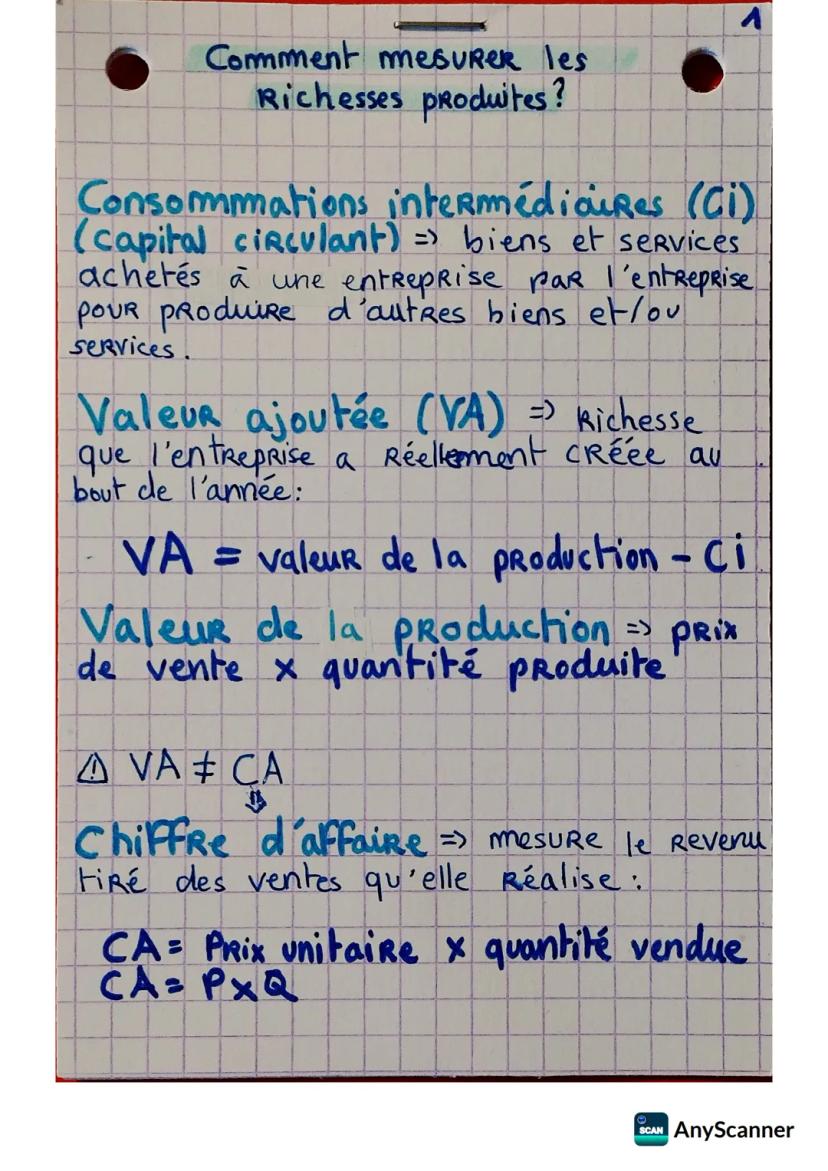 1
Comment mesurer les
Richesses produites?
Consommations intermédiaires (Ci)
(capital circulant) => biens et services
achetés à une entreprise par l'entreprise
pour produire d'autres biens et/ou
services.
Valeur ajoutée (VA) => Richesse
que l'entreprise a réellement créée au
bout de l'année:
VA = valeur de la production - Ci
Valeur de la production => prix
de vente x quantité produite
⚠ VA ≠ CA
⇓
Chiffre d'affaire => mesure le revenu
tiré des ventes qu'elle réalise :
CA = Prix unitaire x quantité vendue
CA = P x Q
SCAN AnyScanner